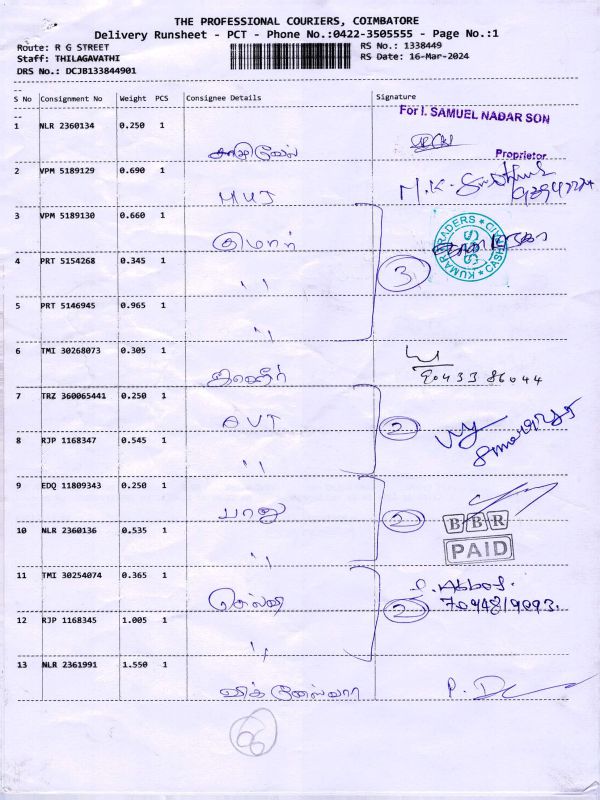 THE PROFESSIONAL COURIERS, COIMBATORE
Delivery Runsheet - PCT - Phone No.:0422-3505555 - Page No.:1
Route: R G STREET RS No.: 1338449
Staff: THILAGAVATHI RS Date: 16-Mar-2024
DRS No.: DCJB133844901
S No Consignment No Weight PCS Consignee Details Signature
For I. SAMUEL NADAR SON
1 NLR 2360134 0.250 1
Proprietor
2 VPM 5189129 0.690 1
MUJ M.K.
3 VPM 5189130 0.660 1
குமார் KUMAR TRADERS
4 PRT 5154268 0.345 1
" 3
5 PRT 5146945 0.965 1
"
6 TMI 30268073 0.305 1
90433 86044
7 TRZ 360065441 0.250 1
AVT 2
8 RJP 1168347 0.545 1
"
9 EDQ 11809343 0.250 1
பாலு 2 BBR
10 NLR 2360136 0.535 1
" PAID
11 TMI 30254074 0.365 1
S. Abbas.
செல்வி 2
12 RJP 1168345 1.005 1
"
13 NLR 2361991 1.550 1
விக்னேஸ்வரா